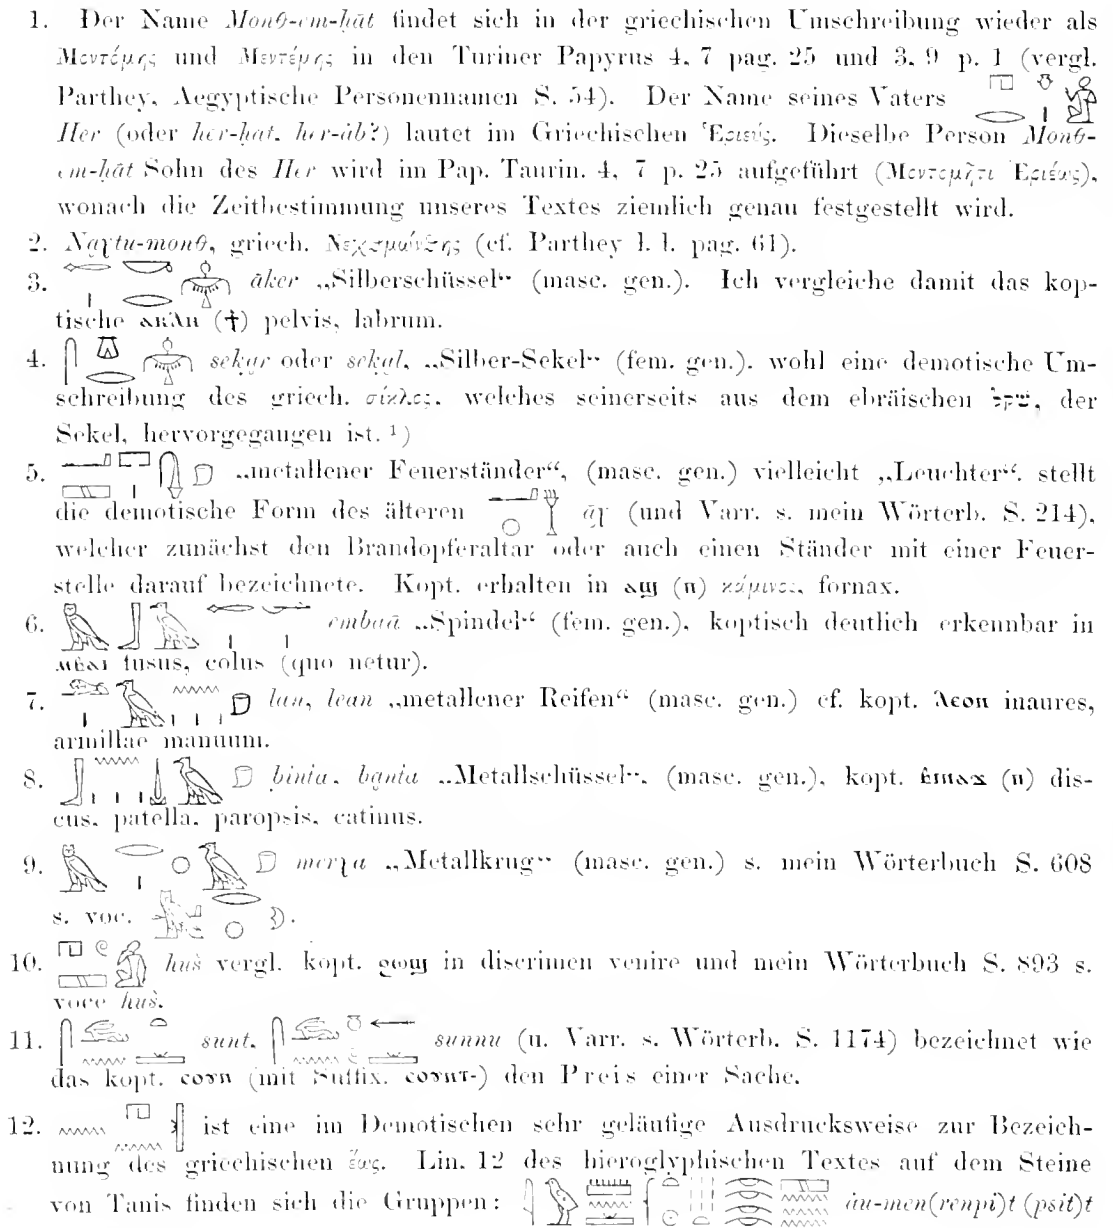 1. Der Name Monθ-em-ḥāt findet sich in der griechischen Umschreibung wieder als
Μεντέμης und Μεντέμης in den Turiner Papyrus 4, 7 pag. 25 und 3, 9 p. 1 (vergl.
Parthey, Aegyptische Personennamen S. 54). Der Name seines Vaters
Her (oder her-ḥat, her-àb?) lautet im Griechischen Ἑριεύς. Dieselbe Person Monθ-
em-ḥāt Sohn des Her wird im Pap. Taurin. 4, 7 p. 25 aufgeführt (Μεντεμῆτι Ἑριέως),
wonach die Zeitbestimmung unseres Textes ziemlich genau festgestellt wird.
2. Naχtu-monθ, griech. Νεχθμώνθης (cf. Parthey l. l. pag. 61).
3. āker „Silberschüssel“ (masc. gen.). Ich vergleiche damit das kop-
tische ⲁⲕⲁⲗⲏ (ϯ) pelvis, labrum.
4. seḳar oder seḳal, „Silber-Sekel“ (fem. gen.). wohl eine demotische Um-
schreibung des griech. σίκλος, welches seinerseits aus dem ebräischen שׁקל, der
Sekel, hervorgegangen ist. ¹)
5. „metallener Feuerständer“, (masc. gen.) vielleicht „Leuchter“. stellt
die demotische Form des älteren āχ (und Varr. s. mein Wörterb. S. 214),
welcher zunächst den Brandopferaltar oder auch einen Ständer mit einer Feuer-
stelle darauf bezeichnete. Kopt. erhalten in ⲁϣ (ⲡ) κάμινος, fornax.
6. embaā „Spindel“ (fem. gen.), koptisch deutlich erkennbar in
ⲙⲃⲁⲓ fusus, colus (quo netur).
7. lan, lean „metallener Reifen“ (masc. gen.) cf. kopt. ⲗⲉⲟⲛ inaures,
armillae manuum.
8. binta, banta „Metallschüssel“, (masc. gen.), kopt. ⲃⲓⲛⲁϫ (ⲡ) dis-
cus, patella, paropsis, catinus.
9. merχa „Metallkrug“ (masc. gen.) s. mein Wörterbuch S. 608
s. voc.
10. huš vergl. kopt. ϩⲱϣ in discrimen venire und mein Wörterbuch S. 893 s.
voce huš.
11. sunt, sunnu (u. Varr. s. Wörterb. S. 1174) bezeichnet wie
das kopt. ⲥⲟⲩⲛ (mit Suffix. ⲥⲟⲩⲛⲧ-) den Preis einer Sache.
12. ist eine im Demotischen sehr geläufige Ausdrucksweise zur Bezeich-
nung des griechischen ἕως. Lin. 12 des hieroglyphischen Textes auf dem Steine
von Tanis finden sich die Gruppen: àu-men(renpi)t (psit)t